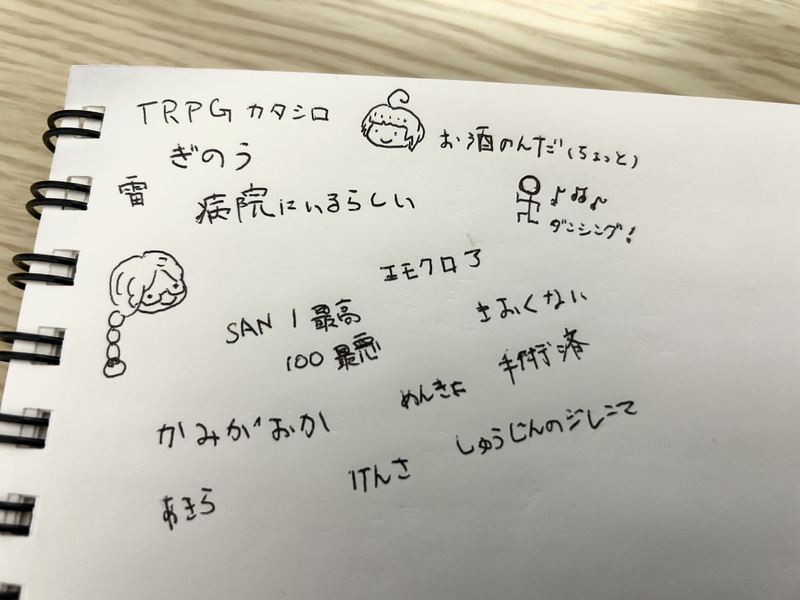 TRPG カタシロ
お酒のんだ(ちょっと)
ぎのう
雷
病院にいるらしい
♪♫♪
ダンシング!
エモクロア
SAN 1 最高
100 最悪
きおくない
手術済
めんきた
かみがおか
しゅうじんのジレンマ
けんさ
あきら